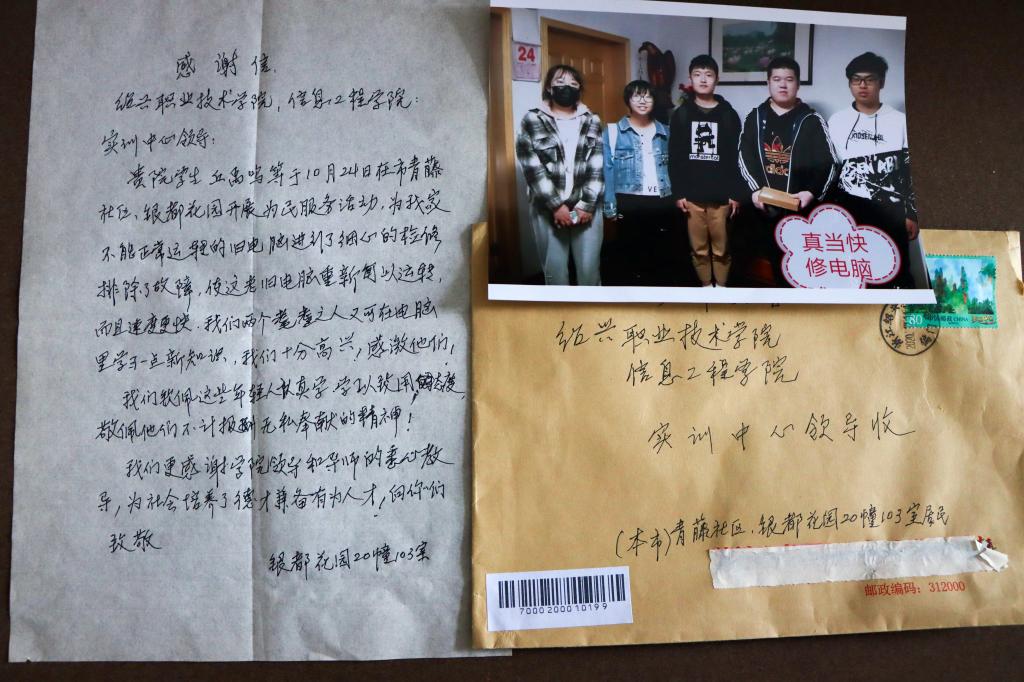 感谢信.
绍兴职业技术学院,信息工程学院:
实训中心领导:
贵院学生丘禹鸣等于10月24日在市青藤
社区、银都花园开展为民服务活动,为我家
不能正常运转的旧电脑进行了细心的检修
排除了故障,使这老旧电脑重新可以运转,
而且速度更快.我们两个耄耋之人又可在电脑
里学习一点新知识,我们十分高兴,感激他们,
我们钦佩这些年轻人认真学,学以致用的态度,
敬佩他们不计报酬无私奉献的精神!
我们更感谢学院领导和导师的悉心教
导,为社会培养了德才兼备有为人才,向你们
致敬
银都花园20幢103室
24
adidas
真当快
修电脑
80
中国邮政 CHINA
绍兴职业技术学院
信息工程学院
实训中心领导收
(本市)青藤社区、银都花园20幢103室居民
邮政编码:312000
7000200010199